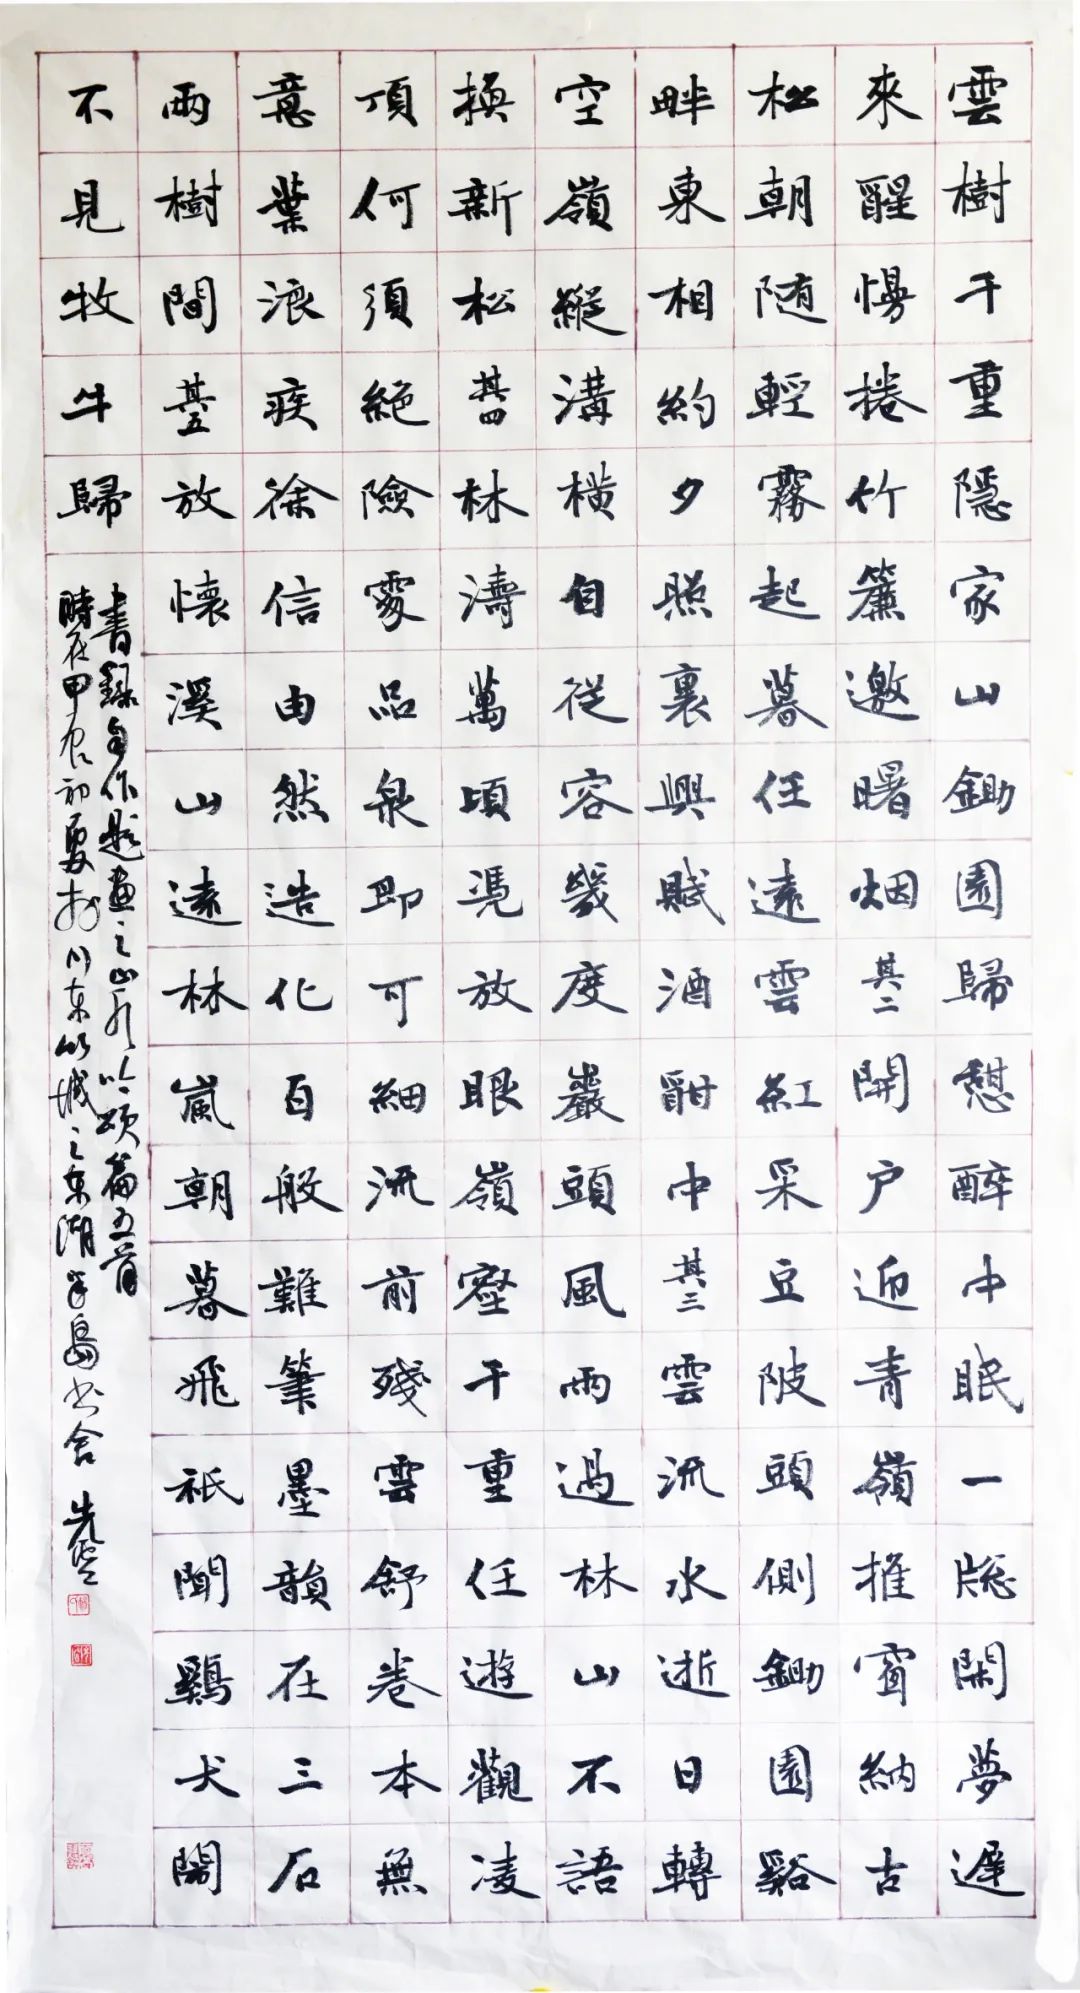 雲樹千重隱家山鋤園歸憩醉中眠一牕閑夢遲
來醒慢捲竹簾邀曙烟其二開户迎青嶺推窗納古
松朝随輕霧起暮任遠雲紅采豆陂頭側鋤園谿
畔東相約夕照裏興賦酒酣中其三雲流水逝日轉
空嶺縱溝橫自從容幾度巖頭風雨過林山不語
換新松其四林濤萬頃凴放眼嶺壑千重任遊觀凌
頂何須絶險處品泉即可細流前殘雲舒卷本無
意葉浪疾徐信由然造化百般難筆墨韻在三石
兩樹間其五放懷溪山遠林嵐朝暮飛祇聞鷄犬鬧
不見牧牛歸
書録自作題畫之山水吟頌篇五首
時在甲辰初夏於川東竹城之東湖半島書舍